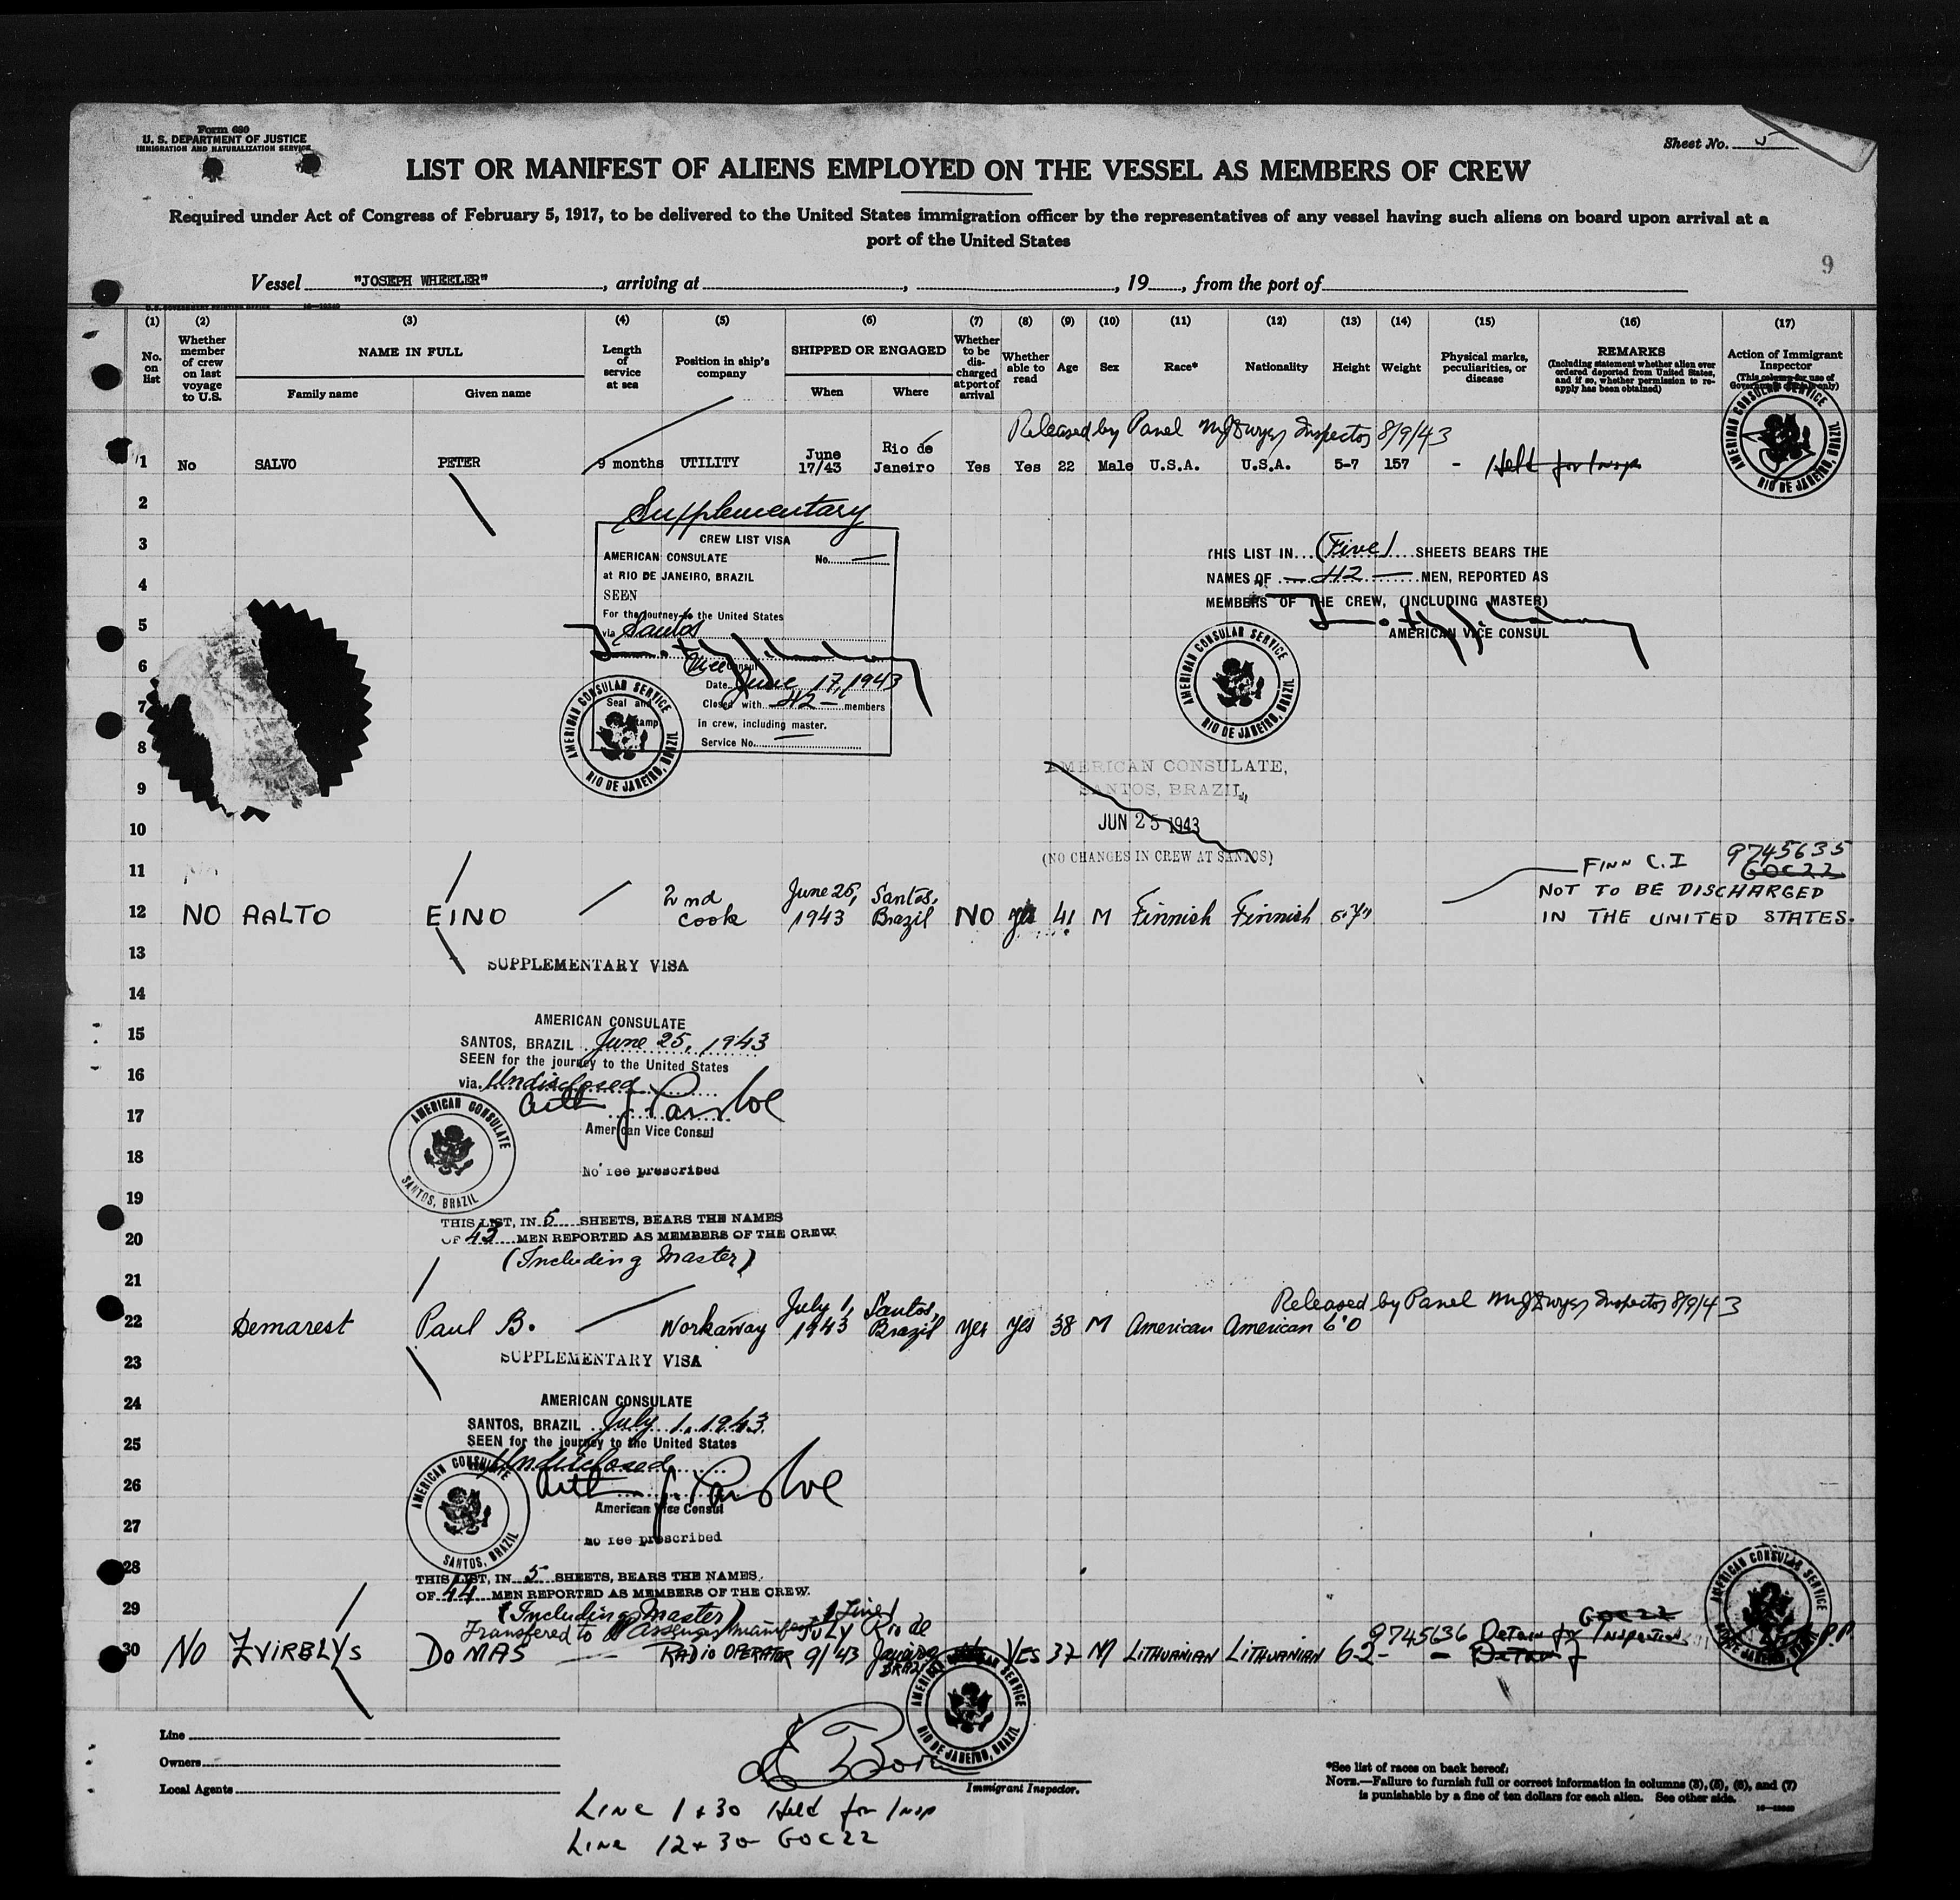 Form 680
U. S. DEPARTMENT OF JUSTICE
IMMIGRATION AND NATURALIZATION SERVICE
Sheet No. 5
LIST OR MANIFEST OF ALIENS EMPLOYED ON THE VESSEL AS MEMBERS OF CREW
Required under Act of Congress of February 5, 1917, to be delivered to the United States immigration officer by the representatives of any vessel having such aliens on board upon arrival at a
port of the United States
9
Vessel "JOSEPH WHEELER", arriving at , , 19 , from the port of
(1) (2) (3) (4) (5) (6) (7) (8) (9) (10) (11) (12) (13) (14) (15) (16) (17)
No. on list
Whether member of crew on last voyage to U.S.
NAME IN FULL
Family name Given name
Length of service at sea
Position in ship's company
SHIPPED OR ENGAGED
When Where
Whether to be discharged at port of arrival
Whether able to read
Age
Sex
Race*
Nationality
Height
Weight
Physical marks, peculiarities, or disease
REMARKS
(Including statement whether alien ever ordered deported from United States, and if so, whether permission to reapply has been obtained)
Action of Immigrant Inspector
(This column for use of Government officials only)
AMERICAN CONSULAR SERVICE
RIO DE JANEIRO, BRAZIL
Released by Panel Inspector 8/9/43
1 No SALVO PETER 9 months UTILITY June 17/43 Rio de Janeiro Yes Yes 22 Male U.S.A. U.S.A. 5-7 157 - Held for Insp
2
Supplementary
3
CREW LIST VISA
AMERICAN CONSULATE No.
at RIO DE JANEIRO, BRAZIL
SEEN
For the journey to the United States
via Santos
Vice Consul
Date June 17, 1943
Closed with 42 members
in crew, including master.
Service No.
Seal and Stamp
AMERICAN CONSULAR SERVICE
RIO DE JANEIRO, BRAZIL
THIS LIST IN (Five) SHEETS BEARS THE
NAMES OF 42 MEN, REPORTED AS
MEMBERS OF THE CREW, (INCLUDING MASTER)
AMERICAN VICE CONSUL
AMERICAN CONSULAR SERVICE
RIO DE JANEIRO, BRAZIL
4
5
6
7
8
9
10
AMERICAN CONSULATE,
SANTOS, BRAZIL
JUN 25 1943
(NO CHANGES IN CREW AT SANTOS)
11
FINN C.I 9745635
GOC22
NOT TO BE DISCHARGED
IN THE UNITED STATES.
12 NO AALTO EINO 2nd cook June 25, 1943 Santos, Brazil NO yes 41 M Finnish Finnish 5'7"
13
SUPPLEMENTARY VISA
14
AMERICAN CONSULATE
15
SANTOS, BRAZIL June 25, 1943
SEEN for the journey to the United States
16
via Undisclosed
17
American Vice Consul
AMERICAN CONSULATE
SANTOS, BRAZIL
18
No fee prescribed
19
THIS LIST, IN 5 SHEETS, BEARS THE NAMES
20
OF 43 MEN REPORTED AS MEMBERS OF THE CREW
(Including Master)
21
Released by Panel Inspector 8/9/43
22 Demarest Paul B. Workaway July 1, 1943 Santos, Brazil yes yes 38 M American American 6'0
23
SUPPLEMENTARY VISA
24
AMERICAN CONSULATE
SANTOS, BRAZIL July 1, 1943
25
SEEN for the journey to the United States
Undisclosed
26
American Vice Consul
AMERICAN CONSULATE
SANTOS, BRAZIL
27
No fee prescribed
28
THIS LIST, IN 5 SHEETS, BEARS THE NAMES
OF 44 MEN REPORTED AS MEMBERS OF THE CREW.
29
(Including Master)
Transfered to Passenger manifest
AMERICAN CONSULAR SERVICE
GOC22
9745636 Detain for Inspection
30 No ZVIRBLYS DOMAS RADIO OPERATOR JULY 9/43 Rio de Janeiro BRAZIL YES 37 M LITHUANIAN LITHUANIAN 6-2- -
AMERICAN CONSULAR SERVICE
RIO DE JANEIRO, BRAZIL
Line
Owners
Local Agents
Immigrant Inspector.
*See list of races on back hereof.
NOTE.—Failure to furnish full or correct information in columns (3), (5), (6), and (7)
is punishable by a fine of ten dollars for each alien. See other side.
LINE 1 + 30 Held for Insp
LINE 12 + 30 GOC22